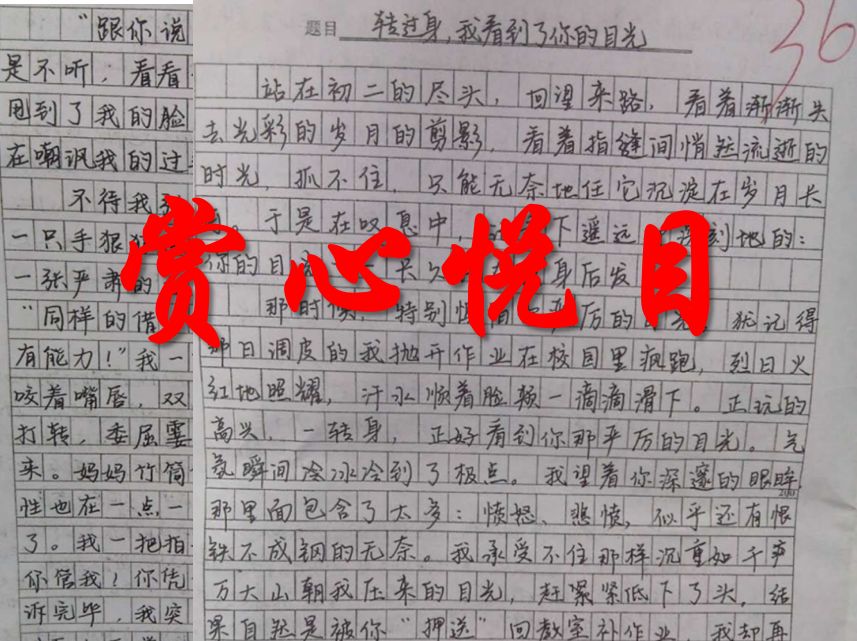 "跟你说
是不听，看看
甩到了我的脸
在嘲讽我的过
不待我
一只手狠
一张严肃的
"同样的借
有能力！"我一
咬着嘴唇，双
打转，委屈霎
来。妈妈竹筒
性也在一点一
了。我一把拍
你管我！你凭
诉完毕，我突
题目 转过身，我看到了你的目光
36
站在初二的尽头，回望来路，看着渐渐失
去光彩的岁月的剪影，看着指缝间悄然流逝的
时光，抓不住，只能无奈地任它沉淀在岁月长
于是在叹息中，下遥远深刻地的：
你的目 长久 身后发
那时 特别 严厉的 犹记得
那日调皮的我抛开作业在校园里疯跑，烈日火
红地照耀，汗水顺着脸颊一滴滴滑下。正玩的
高兴，一转身，正好看到你那严厉的目光。气
氛瞬间冷冰冷到了极点。我望着你深邃的眼眸，
那里面包含了太多：愤怒、悲愤，似乎还有恨
铁不成钢的无奈。我承受不住那样沉重如千军
万大山朝我压来的目光，赶紧紧低下了头。结
果自然是被你"押送"回教室补作业，我却再
赏心悦目